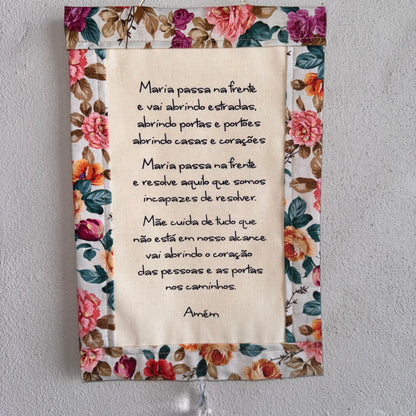 Maria passa na frente
e vai abrindo estradas,
abrindo portas e portões
abrindo casas e corações
Maria passa na frente
e resolve aquilo que somos
incapazes de resolver.
Mãe cuida de tudo que
não está em nosso alcance
vai abrindo o coração
das pessoas e as portas
nos caminhos.
Amém